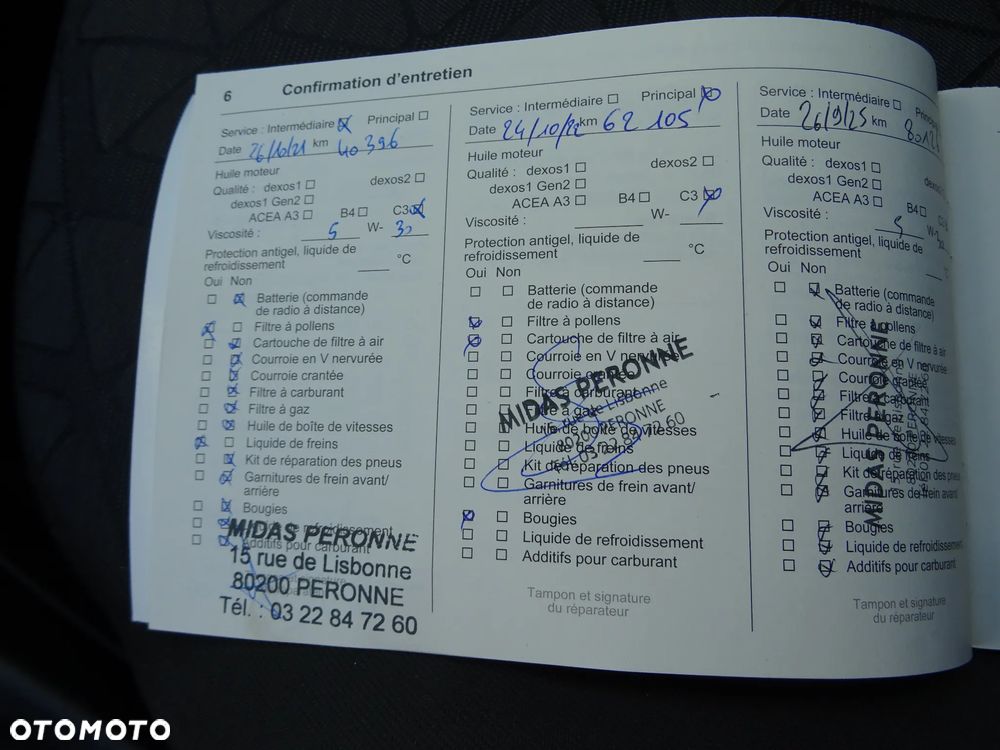 6 Confirmation d'entretien
Service : Intermédiaire Principal
Date 26/10/21 km 40 396
Huile moteur
Qualité : dexos1 dexos2
dexos1 Gen2
ACEA A3 B4 C3
Viscosité : 5 W- 30
Protection antigel, liquide de
refroidissement °C
Oui Non
Batterie (commande
de radio à distance)
Filtre à pollens
Cartouche de filtre à air
Courroie en V nervurée
Courroie crantée
Filtre à carburant
Filtre à gaz
Huile de boîte de vitesses
Liquide de freins
Kit de réparation des pneus
Garnitures de frein avant/
arrière
Bougies
refroidissement
Additifs pour carburant
MIDAS PERONNE
15 rue de Lisbonne
80200 PERONNE
Tél. : 03 22 84 72 60
Service : Intermédiaire Principal
Date 24/10/22 km 62 105
Huile moteur
Qualité : dexos1 dexos2
dexos1 Gen2
ACEA A3 B4 C3
Viscosité : W-
Protection antigel, liquide de
refroidissement °C
Oui Non
Batterie (commande
de radio à distance)
Filtre à pollens
Cartouche de filtre à air
Courroie en V nervurée
Courroie crantée
Filtre à carburant
Filtre à gaz
Huile de boîte de vitesses
Liquide de freins
Kit de réparation des pneus
Garnitures de frein avant/
arrière
Bougies
Liquide de refroidissement
Additifs pour carburant
MIDAS PERONNE
15 rue de Lisbonne
80200 PERONNE
Tél. 03 22 84 72 60
Tampon et signature
du réparateur
Service : Intermédiaire
Date 26/9/25 km
Huile moteur
Qualité : dexos1
dexos1 Gen2
ACEA A3 B4
Viscosité : 5 W-
Protection antigel, liquide de
refroidissement
Oui Non
Batterie (commande
de radio à distance)
Filtre à pollens
Cartouche de filtre à air
Courroie en V nervurée
Courroie crantée
Filtre à carburant
Filtre à gaz
Huile de boîte de vitesses
Liquide de freins
Kit de réparation des pneus
Garnitures de frein avant/
arrière
Bougies
Liquide de refroidissement
Additifs pour carburant
MIDAS PERONNE
Tampon et signature
du réparateur
OTOMOTO